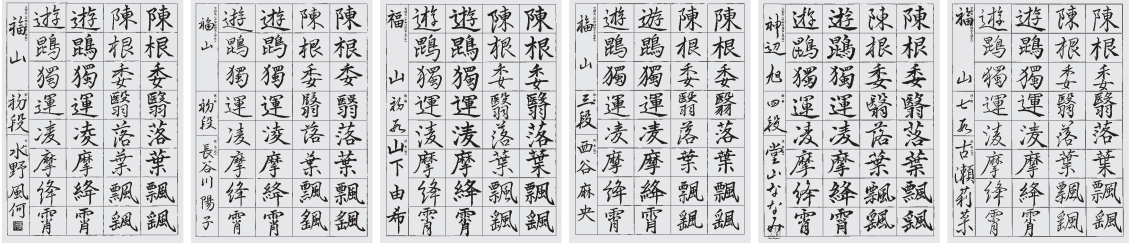 陳根委翳落葉飄颻
陳根委翳落葉飄颻
遊鵾獨運凌摩絳霄
遊鵾獨運凌摩絳霄
福山 七段 古瀬莉菜
陳根委翳落葉飄颻
陳根委翳落葉飄颻
遊鵾獨運凌摩絳霄
遊鵾獨運凌摩絳霄
神辺旭 四段 堂山なな
陳根委翳落葉飄颻
陳根委翳落葉飄颻
遊鵾獨運凌摩絳霄
遊鵾獨運凌摩絳霄
福山 三段 西谷麻央
陳根委翳落葉飄颻
陳根委翳落葉飄颻
遊鵾獨運凌摩絳霄
遊鵾獨運凌摩絳霄
福山 初段 山下由布
陳根委翳落葉飄颻
陳根委翳落葉飄颻
遊鵾獨運凌摩絳霄
遊鵾獨運凌摩絳霄
福山 初段 長谷川陽子
陳根委翳落葉飄颻
陳根委翳落葉飄颻
遊鵾獨運凌摩絳霄
遊鵾獨運凌摩絳霄
福山 初段 水野風何